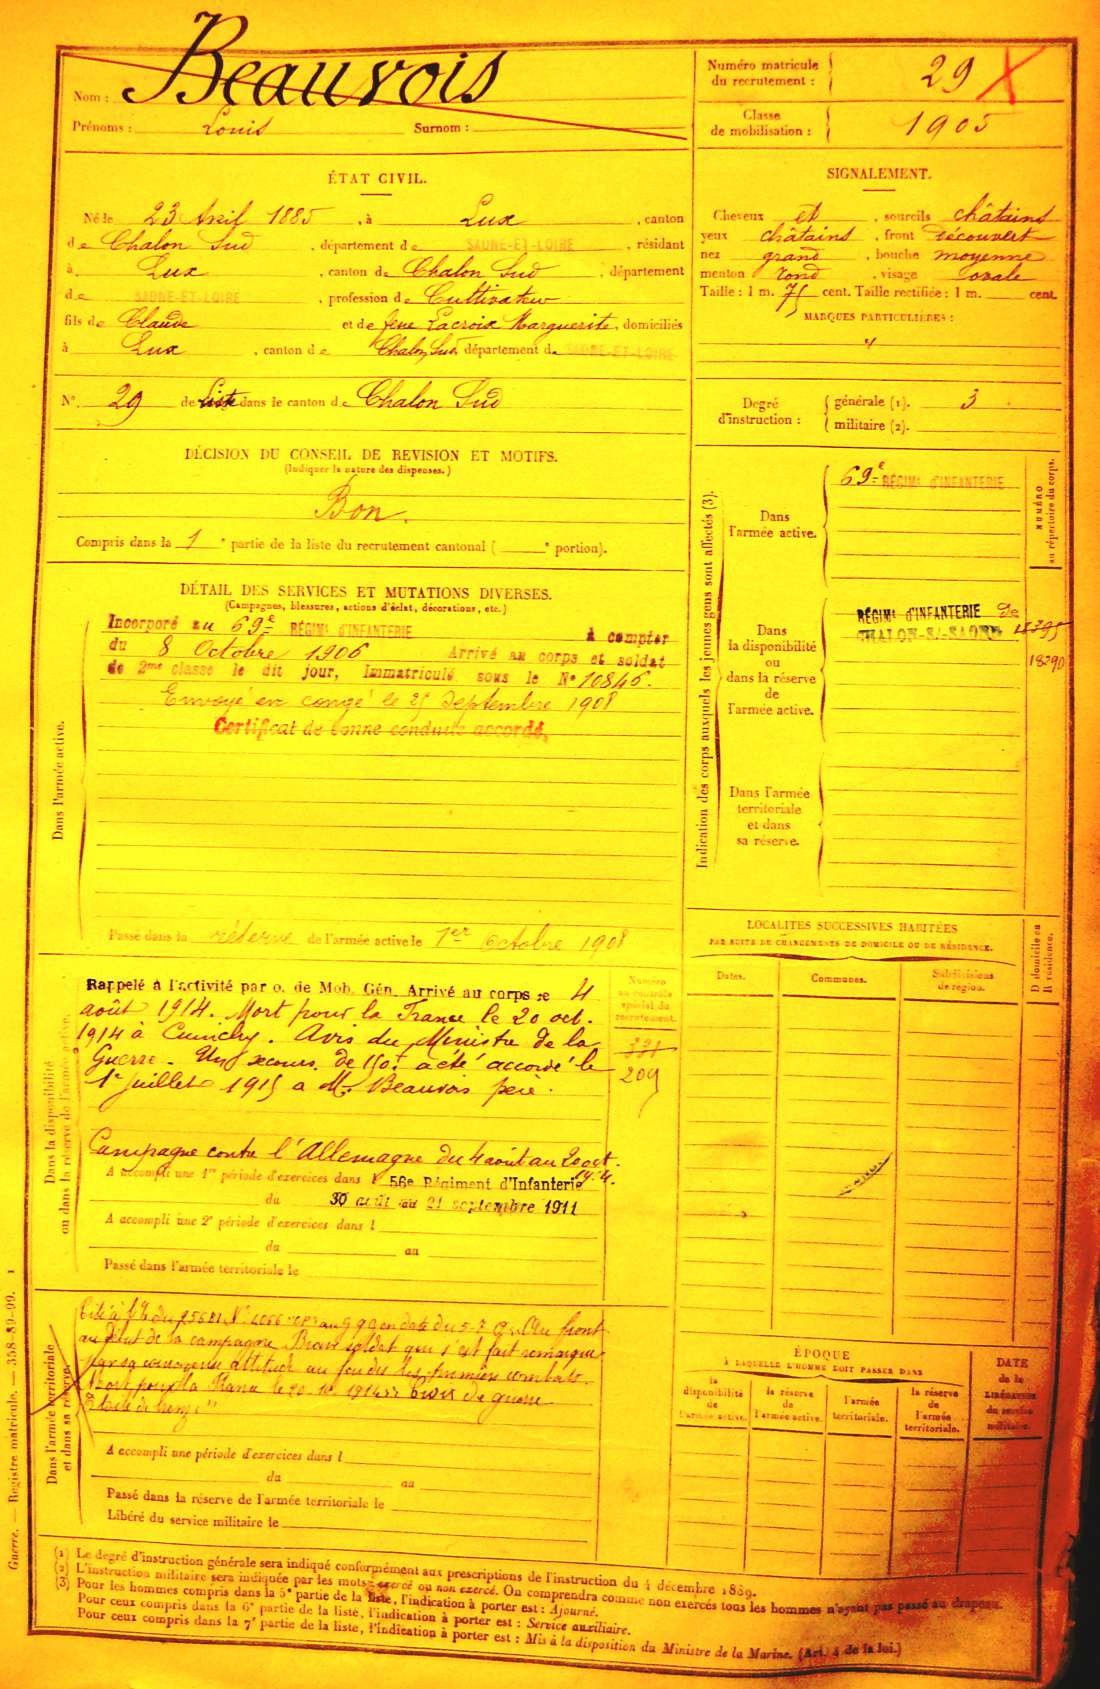 Nom : Beauvois
Prénoms : Louis Surnom :
Numéro matricule du recrutement : 29 X
Classe de mobilisation : 1905
ÉTAT CIVIL.
Né le 23 Avril 1885, à Lux, canton
de Chalon Sud, département de SAONE-ET-LOIRE, résidant
à Lux, canton de Chalon Sud, département
de SAONE-ET-LOIRE, profession de Cultivateur
fils de Claude et de feue Lacroix Marguerite, domiciliés
à Lux, canton de Chalon Sud, département de SAONE-ET-LOIRE
N° 29 de Liste dans le canton de Chalon Sud
SIGNALEMENT.
Cheveux et, sourcils châtains
yeux châtains, front découvert
nez grand, bouche moyenne
menton rond, visage ovale
Taille : 1 m. 75 cent. Taille rectifiée : 1 m. cent.
MARQUES PARTICULIÈRES :
"
Degré d'instruction : générale (1). 3
militaire (2).
DÉCISION DU CONSEIL DE REVISION ET MOTIFS.
(Indiquer la nature des dispenses.)
Bon.
Compris dans la 1e partie de la liste du recrutement cantonal ( e portion).
DÉTAIL DES SERVICES ET MUTATIONS DIVERSES.
(Campagnes, blessures, actions d'éclat, décorations, etc.)
Dans l'armée active.
Incorporé au 69e RÉGIMt D'INFANTERIE à compter
du 8 Octobre 1906 Arrivé au corps et soldat
de 2me classe le dit jour, Immatriculé sous le N° 10846.
Envoyé en congé le 25 Septembre 1908
Certificat de bonne conduite accordé,
Passé dans la réserve de l'armée active le 1er Octobre 1908
Indication des corps auxquels les jeunes gens sont affectés (3).
Dans l'armée active.
69e RÉGIMt D'INFANTERIE
NUMÉRO au répertoire du corps.
Dans la disponibilité ou dans la réserve de l'armée active.
RÉGIMt D'INFANTERIE de
CHALON-S/-SAONE
18290
Dans l'armée territoriale et dans sa réserve.
LOCALITÉS SUCCESSIVES HABITÉES
PAR SUITE DE CHANGEMENTS DE DOMICILE OU DE RÉSIDENCE.
Dates. Communes. Subdivisions de région. D domicile ou R résidence.
Dans la disponibilité ou dans la réserve de l'armée active.
Numéro au contrôle spécial du recrutement.
331
209
Rappelé à l'activité par o. de Mob. Gén. Arrivé au corps le 4
août 1914. Mort pour la France le 20 oct.
1914 à Cuinchy. Avis du Ministre de la
Guerre. Un secours de 150f a été accordé le
1er juillet 1915 a Mr Beauvois père.
Campagne contre l'Allemagne du 4 août au 20 oct.
1914.
A accompli une 1re période d'exercices dans l 56e Régiment d'Infanterie
du 30 août au 21 septembre 1911
A accompli une 2e période d'exercices dans l
du au
Passé dans l'armée territoriale le
Dans l'armée territoriale et dans sa réserve.
au début de la campagne Brave soldat qui s'est fait remarquer
par sa courageuse attitude au feu dès les premiers combats.
Mort pour la France le 20 1914 croix de guerre
Etoile de bronze"
A accompli une période d'exercices dans l
du au
Passé dans la réserve de l'armée territoriale le
Libéré du service militaire le
ÉPOQUE
À LAQUELLE L'HOMME DOIT PASSER DANS
la disponibilité de l'armée active.
la réserve de l'armée active.
l'armée territoriale.
la réserve de l'armée territoriale.
DATE de la LIBÉRATION du service militaire.
Guerre. — Registre matricule. — 358-89-99. 1
(1) Le degré d'instruction générale sera indiqué conformément aux prescriptions de l'instruction du 4 décembre 1889.
(2) L'instruction militaire sera indiquée par les mots : exercé ou non exercé. On comprendra comme non exercés tous les hommes n'ayant pas passé au drapeau.
(3) Pour les hommes compris dans la 5e partie de la liste, l'indication à porter est : Ajourné.
Pour ceux compris dans la 6e partie de la liste, l'indication à porter est : Service auxiliaire.
Pour ceux compris dans la 7e partie de la liste, l'indication à porter est : Mis à la disposition du Ministre de la Marine. (Art. 4 de la loi.)